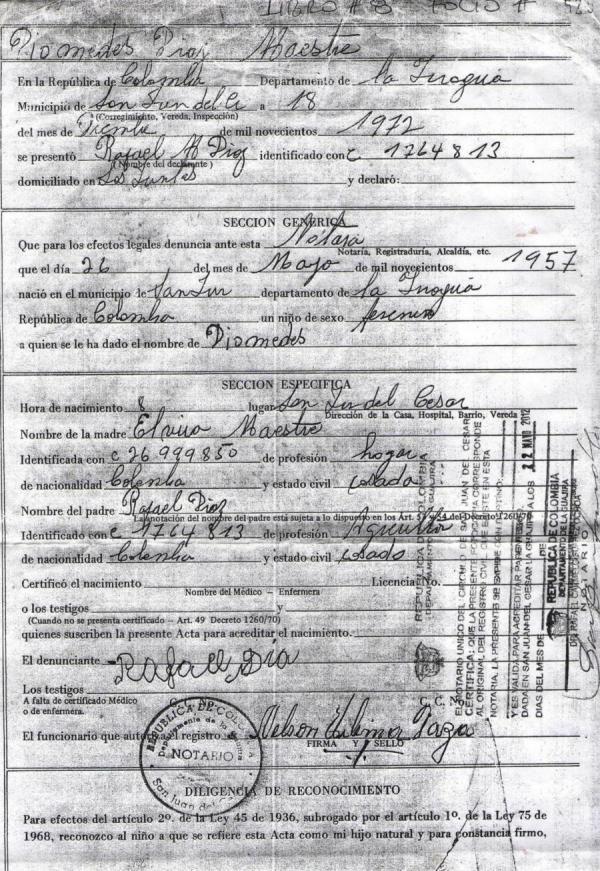 LIBRO # 8 - FOLIO #
Diomedes Diaz Maestre
En la República de Colombia Departamento de la Guagira
Municipio de San Juan del C a 18
(Corregimiento, Vereda, Inspección)
del mes de de mil novecientos 1972
se presentó Rafael M Diaz identificado con c. 1764813
(Nombre del declarante)
domiciliado en y declaró:
SECCION GENERICA
Que para los efectos legales denuncia ante esta Notaria
Notaría, Registraduría, Alcaldía, etc.
que el día 26 del mes de Mayo de mil novecientos 1957
nació en el municipio de San Juan departamento de la Guagira
República de Colombia un niño de sexo
a quien se le ha dado el nombre de Diomedes
SECCION ESPECIFICA
Hora de nacimiento 8 lugar San Juan del Cesar
Dirección de la Casa, Hospital, Barrio, Vereda
Nombre de la madre Elvira Maestre
Identificada con c 26999850 de profesión hogar
de nacionalidad Colombia y estado civil casada
Nombre del padre Rafael Diaz
La anotación del nombre del padre está sujeta a lo dispuesto en los Art. 53 y 54 del Decreto 1260/70
Identificado con c 1764813 de profesión Agricultor
de nacionalidad Colombia y estado civil casado
Certificó el nacimiento Licencia No.
Nombre del Médico - Enfermera
o los testigos y
(Cuando no se presenta certificado - Art. 49 Decreto 1260/70)
quienes suscriben la presente Acta para acreditar el nacimiento.
El denunciante Rafael Dia
Los testigos
A falta de certificado Médico C. C. No.
o de enfermera.
El funcionario que autoriza el registro Nelson
FIRMA Y SELLO
REPUBLICA DE COLOMBIA
NOTARIO
San Juan del
DILIGENCIA DE RECONOCIMIENTO
Para efectos del artículo 2º. de la Ley 45 de 1936, subrogado por el artículo 1º. de la Ley 75 de
1968, reconozco al niño a que se refiere esta Acta como mi hijo natural y para constancia firmo,
REPUBLICA DE COLOMBIA
DEPARTAMENTO DE LA GUAJIRA
EL NOTARIO UNICO DEL CIRCULO DE SAN JUAN DEL CESAR
CERTIFICA: QUE LA PRESENTE FOTOCOPIA CORRESPONDE
AL ORIGINAL DEL REGISTRO CIVIL QUE EXISTE EN ESTA
NOTARIA, LA PRESENTE SE EXPIDE CON DESTINO:
Y ES VALIDA PARA ACREDITAR PARENTESCO
DADA EN SAN JUAN DEL CESAR LA GUAJIRA A LOS 22 MAYO 2012
DIAS DEL MES DE DE
REPUBLICA DE COLOMBIA
DEPARTAMENTO DE LA GUAJIRA
NOTARIO